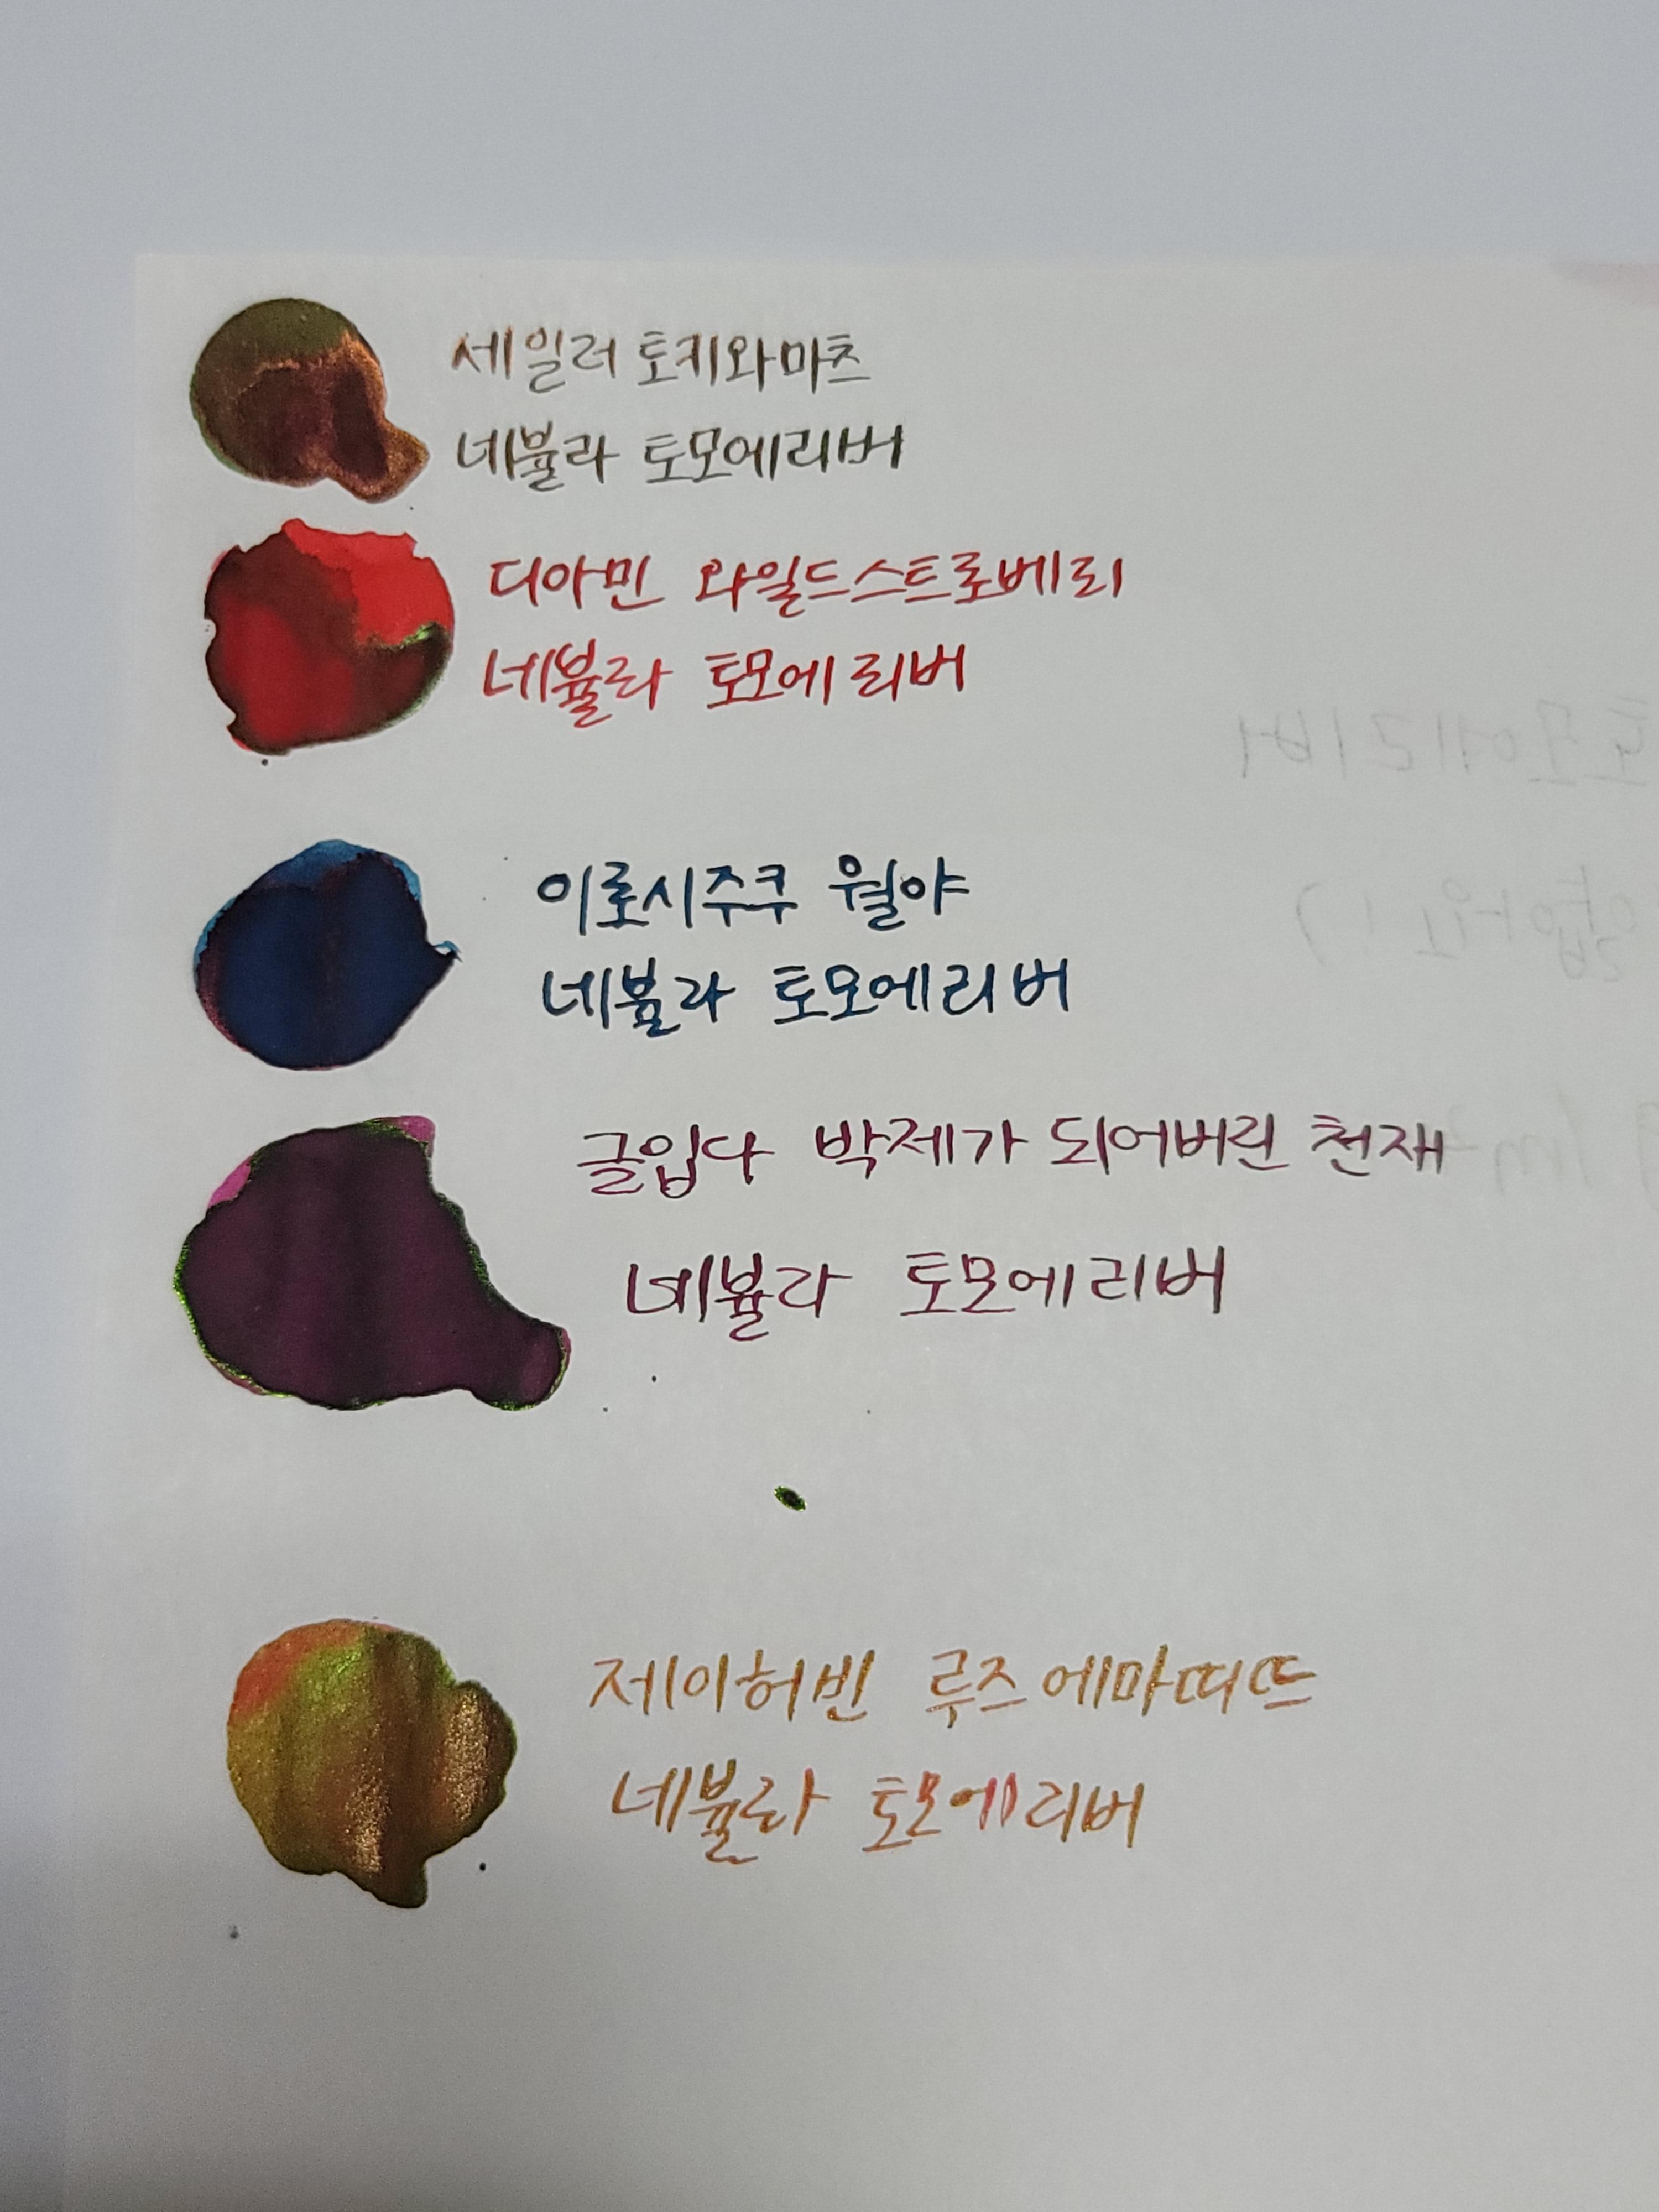 세일러 토키와마츠
네뷸라 토모에리버
디아민 와일드스트로베리
네뷸라 토모에리버
이로시주쿠 월야
네뷸라 토모에리버
글입다 박제가 되어버린 천재
네뷸라 토모에리버
제이허빈 루즈에마띠뜨
네뷸라 토모에리버
토모에리버